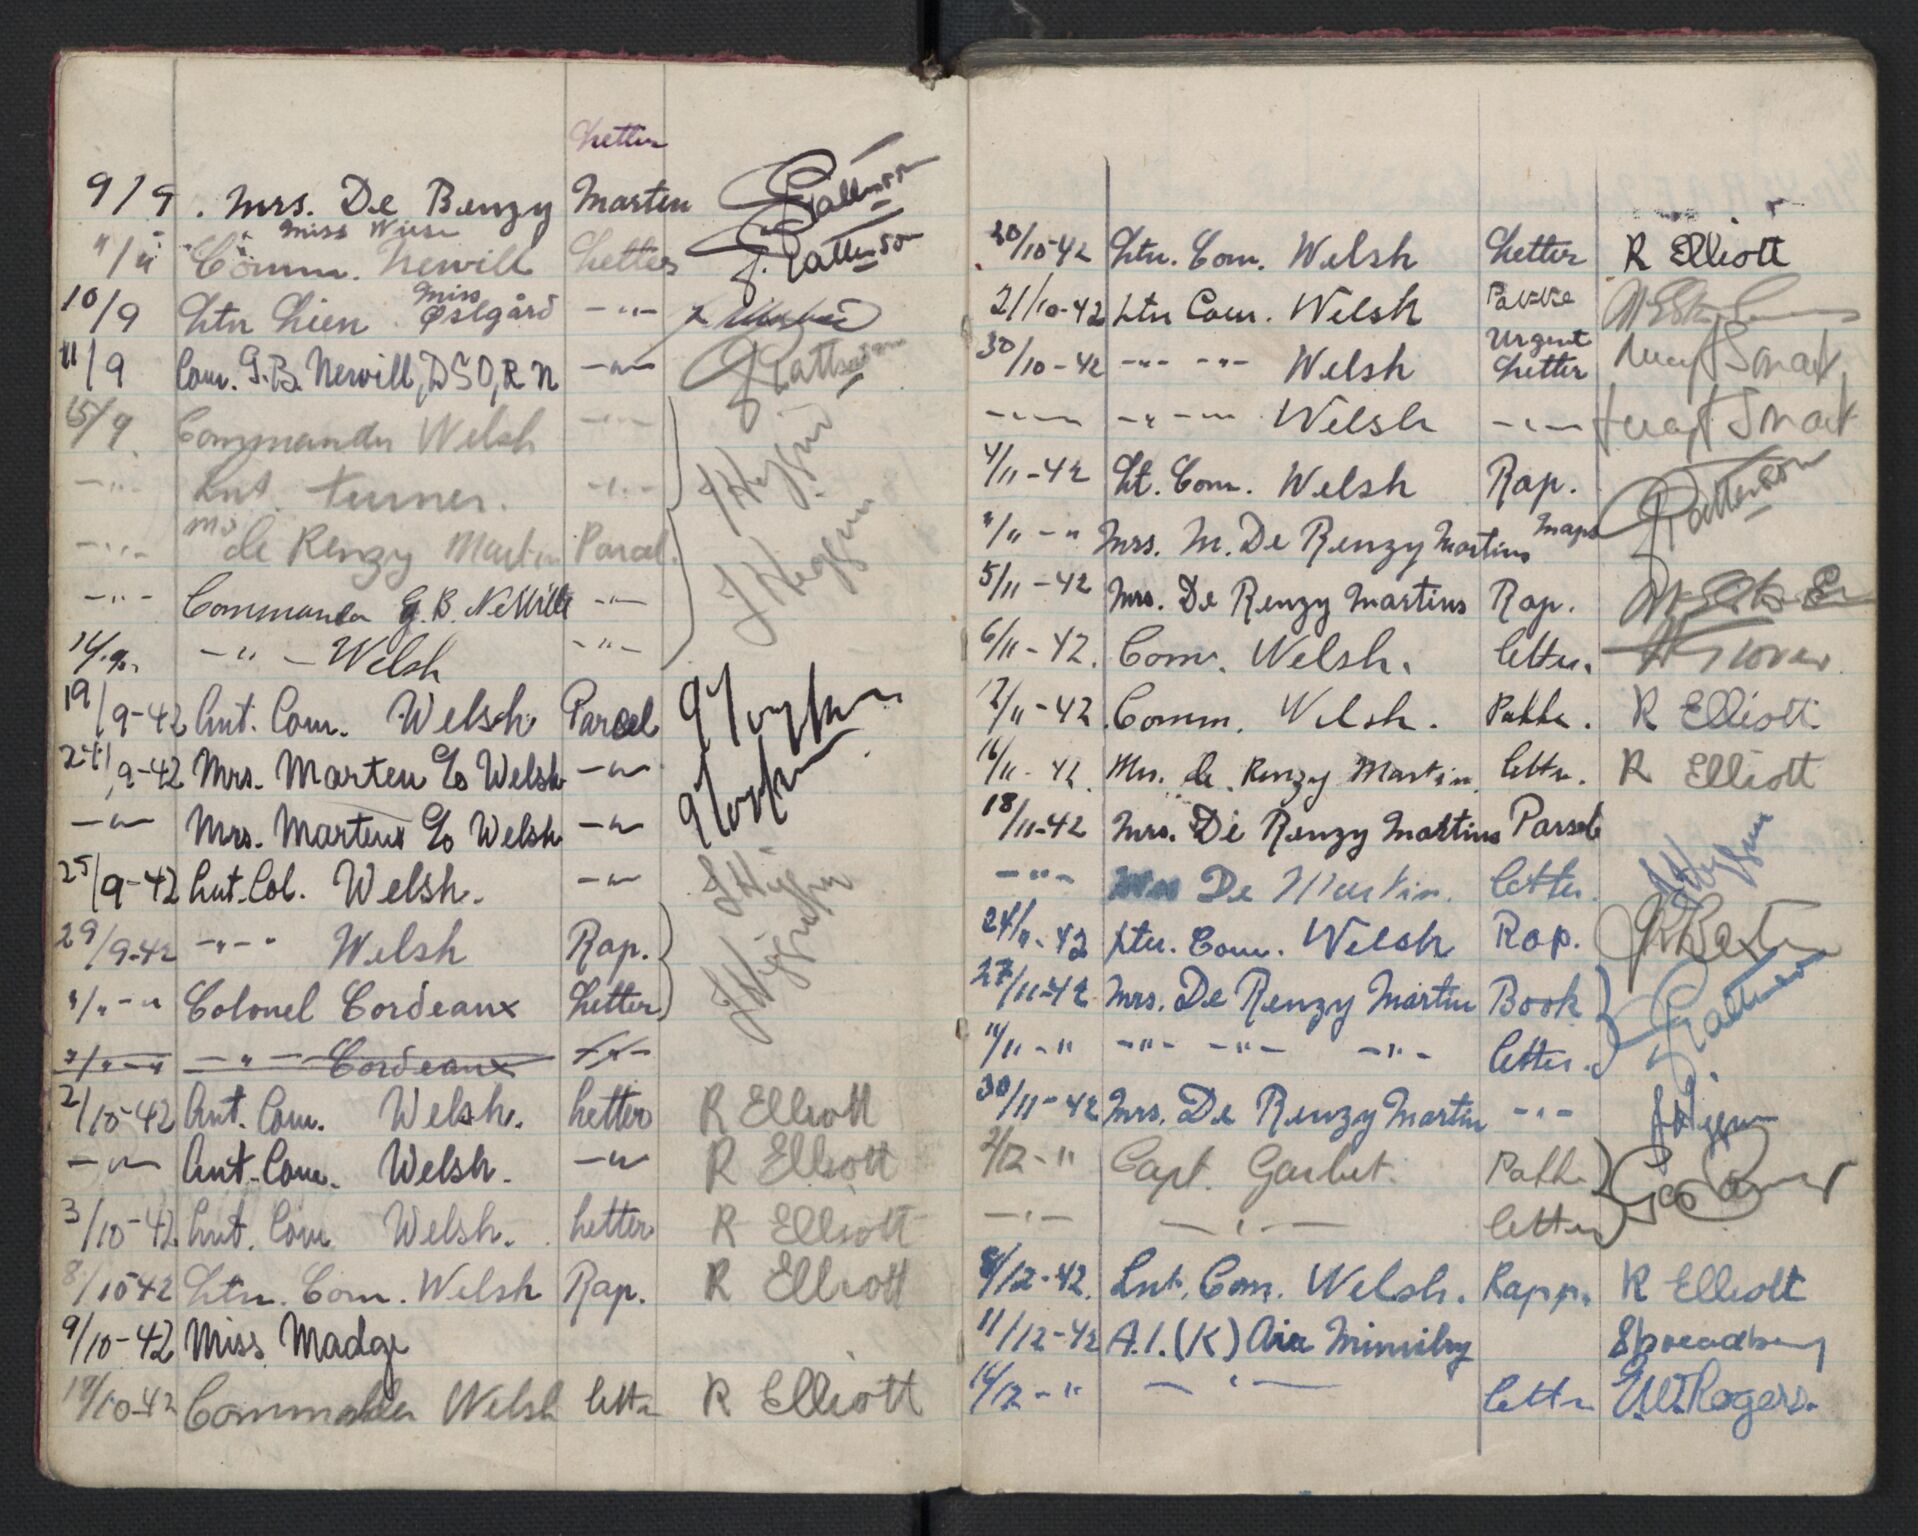 Letter
9/9 . Mrs. De Benzy Marten J. Patterson
Miss Wiese
"/" Comm. Newill Letters J. Patterson
10/9 Ltn Lien Miss Østgård -"-
11/9 Com. G.B. Newill, DSO, RN -"- J Pattersson
15/9 Commander Welsh -"-
-"- Lnt. Turner. -"- J Higgins
-"- Ms de Renzy Martin Parcel. J Higgins
-"- Commander G. B. NeWille -"-
16/9. -"- Welsh -"-
19/9-42 Lnt. Com. Welsh Parcel
24/9-42 Mrs. Marten c/o Welsh -"-
-"- Mrs. Martens c/o Welsh -"-
25/9-42 Lnt. Col. Welsh. -"- J Higgins
29/9-42 -"- Welsh Rap.
"/"-" Colonel Cordeaux Letter J Higgins
"/"-" -"- Cordeaux -"-
2/10-42 Lnt. Com. Welsh. Letter R Elliott
-"- Lnt. Com. Welsh. -"- R Elliott
3/10-42 Lnt. Com Welsh. Letter R Elliott
8/10-42 Ltn. Com. Welsh Rap. R Elliott
9/10-42 Miss Madge
19/10-42 Commander Welsh letter R Elliott
20/10-42 Ltn. Com. Welsh Letter R Elliott
21/10-42 Ltn Com. Welsh Pakke
30/10-42 -"- -"- Welsh Urgent Letter Smart
-"- -"- -"- Welsh -"- Smart
4/11-42 Lt. Com. Welsh Rap. J Patterson
"/"-" Mrs. M. De Renzy Martins Maps
5/11-42 Mrs. De Renzy Martins Rap.
6/11-42. Com. Welsh. letter.
12/11-42. Comm. Welsh. Pakke. R Elliott
16/11-42. Mrs. de Renzy Martin. letter. R Elliott
18/11-42 Mrs. De Renzy Martins Parsel
-"- Mrs De Martin. letter. J Higgins
24/11-42 Ltn. Com. Welsh Rap.
27/11-42 Mrs. De Renzy Martin Book J Patterson
"/11-" -"- -"- -"- letter.
30/11-42 Mrs. De Renzy Martin -"- J Higgins
2/12-" Capt. Garbet. Pakke
-"- -"- letter
8/12-42. Lnt. Com. Welsh. Rapp. R Elliott
11/12-42 A.I.(K) Air Ministry Sbroadbery
14/12-" -"- letter E.W. Rogers.